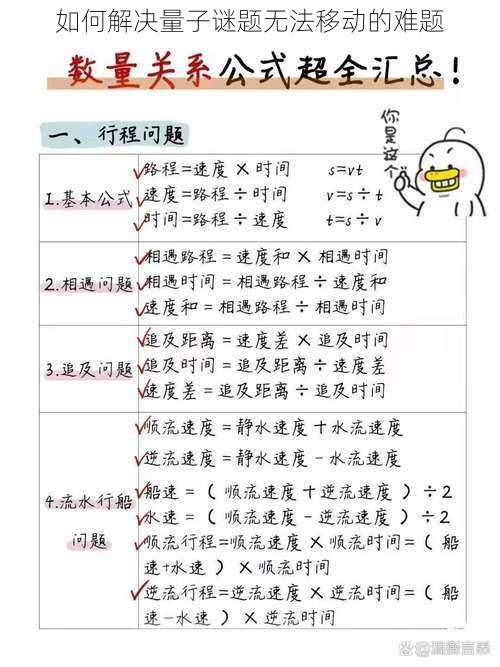 如何解决量子谜题无法移动的难题
数量关系公式超全汇总!
你是这个
一、行程问题
1.基本公式
✓路程=速度×时间 s=vt
✓速度=路程÷时间 v=s÷t
✓时间=路程÷速度 t=s÷v
2.相遇问题
✓相遇路程=速度和×相遇时间
✓相遇时间=相遇路程÷速度和
✓速度和=相遇路程÷相遇时间
3.追及问题
✓追及距离=速度差×追及时间
✓追及时间=追及距离÷速度差
✓速度差=追及距离÷追及时间
4.流水行船
问题
✓顺流速度=静水速度+水流速度
✓逆流速度=静水速度-水流速度
✓船速=(顺流速度+逆流速度)÷2
✓水速=(顺流速度-逆流速度)÷2
✓顺流行程=顺流速度×顺流时间=(船
速+水速)×顺流时间
✓逆流行程=逆流速度×逆流时间=(船
速-水速)×逆流时间